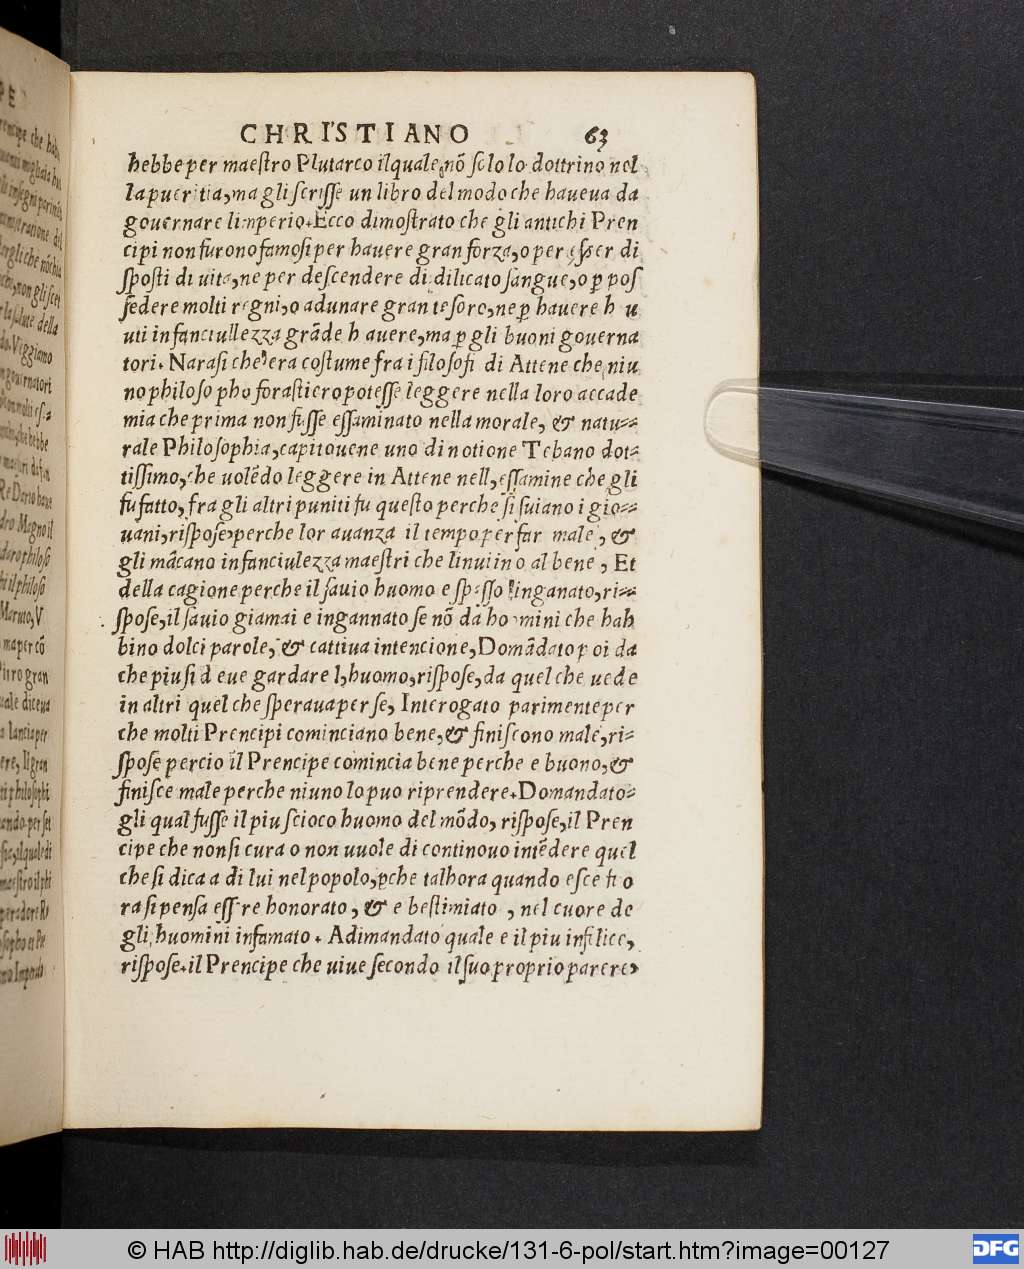 CHRISTIANO 63
hebbe per maestro Plutarco ilquale nõ solo lo dottrino nel
la pueritia, ma gli scrisse un libro del modo che haveva da
governare limperio. Ecco dimostrato che gli antichi Pren
cipi non furono famosi per havere gran forza, o per esser di
sposti di vita, ne per descendere di dilicato sangue, o ꝑ pos
sedere molti regni, o adunare gran tesoro, ne ꝑ havere h u
uti infanciullezza grãde h avere, ma ꝑ gli buoni governa
tori. Narasi che era costume fra i filosofi di Attene che niu
no philosopho forastiero potesse leggere nella loro accade
mia che prima non fusse essaminato nella morale, & natu=
rale Philosophia, capitovene uno di notione Tebano dot=
tissimo, che volẽdo leggere in Attene nell, essamine che gli
fu fatto, fra gli altri puniti fu questo perche si suiano i gio=
vani, rispose, perche lor avanza il tempo per far male, &
gli mãcano infanciulezza maestri che linuiino al bene, Et
della cagione perche il savio huomo e spesso inganato, ri=
spose, il savio giamai e ingannato se nõ da homini che hab
bino dolci parole, & cattiva intencione, Domãdato poi da
che piu si d eve gardare l, huomo, rispose, da quel che vede
in altri quel che sperava per se, Interogato parimente per
che molti Prencipi cominciano bene, & finiscono male, ri=
spose percio il Prencipe comincia bene perche e buono, &
finisce male perche niuno lo puo riprendere. Domandato=
gli qual fusse il piu scioco huomo del mõdo, rispose, il Pren
cipe che non si cura o non vuole di continovo intẽdere quel
che si dica a di lui nel popolo, ꝑche talhora quando esce fuo
ra si pensa essere honorato, & e bestimiato, nel cuore de
gli huomini infamato. Adimandato quale e il piu infelice,
rispose. il Prencipe che vive secondo il suo proprio parere,
© HAB http://diglib.hab.de/drucke/131-6-pol/start.htm?image=00127
DFG